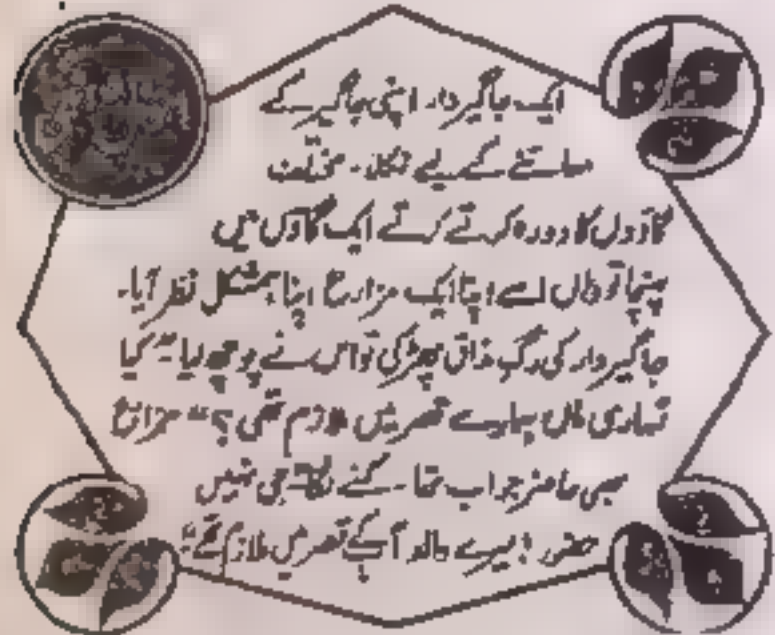 ایک جاگیردار اپنی جاگیر کے
معائنے کے لیے نکلا۔ مختلف
گاؤوں کا دورہ کرتے کرتے ایک گاؤں میں
پہنچا تو وہاں اسے اپنا ایک مزارع اپنا ہمشکل نظر آیا۔
جاگیردار کی رگِ مذاق پھڑکی تو اس نے پوچھ لیا "کیا
تمہاری ماں ہمارے قصر میں ملازم تھی؟" مزارع
بھی حاضر جواب تھا۔ کہنے لگا "جی نہیں
حضور! میرے والد آپ کے قصر میں ملازم تھے"